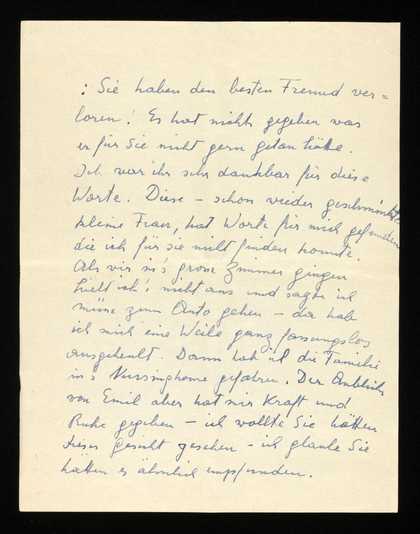 : Sie haben den besten Freund ver=
loren! Es hat nichts gegeben was
er für Sie nicht gern getan hätte.
Ich war ihr sehr dankbar für diese
Worte. Diese – schon wieder geschminkte
kleine Frau, hat Worte für mich gefunden
die ich für sie nicht finden konnte.
Als wir in's grosse Zimmer gingen
hielt ich's nicht aus und sagte ich
müsse zum Auto gehen – da habe
ich mich eine Weile ganz fassungslos
ausgeheult. Dann hab ich die Familie
in's Nursinghome gefahren. Der Anblick
von Emil aber hat mir Kraft und
Ruhe gegeben – ich wollte Sie hätten
dieses Gesicht gesehen – ich glaube Sie
hätten es ähnlich empfunden.